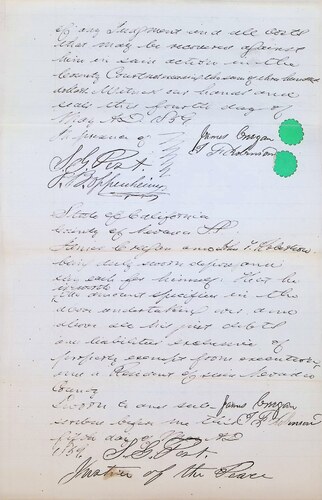 of any Judgment and all costs
that may be recovered against
him in said action in the
County Court not exceeding the sum of three hundred
dollars Witness our hands and
seals this fourth day of
May A.D. 1859
In presence of James Crogan
S. G. Pert. T. Robinson
State of California
County of Nevada SS
James Crogan and T. Robinson
being duly sworn depose and
say each for himself that he
is worth
the amount specified in the
above undertaking over and
above all his just debts
and liabilities exclusive of
property exempt from execution,
and a Resident of said Nevada
County
Sworn to and sub- James Crogan
scribed before me this T. Robinson
day of A.D.
1859. S. G. Pert.
Justice of the Peace